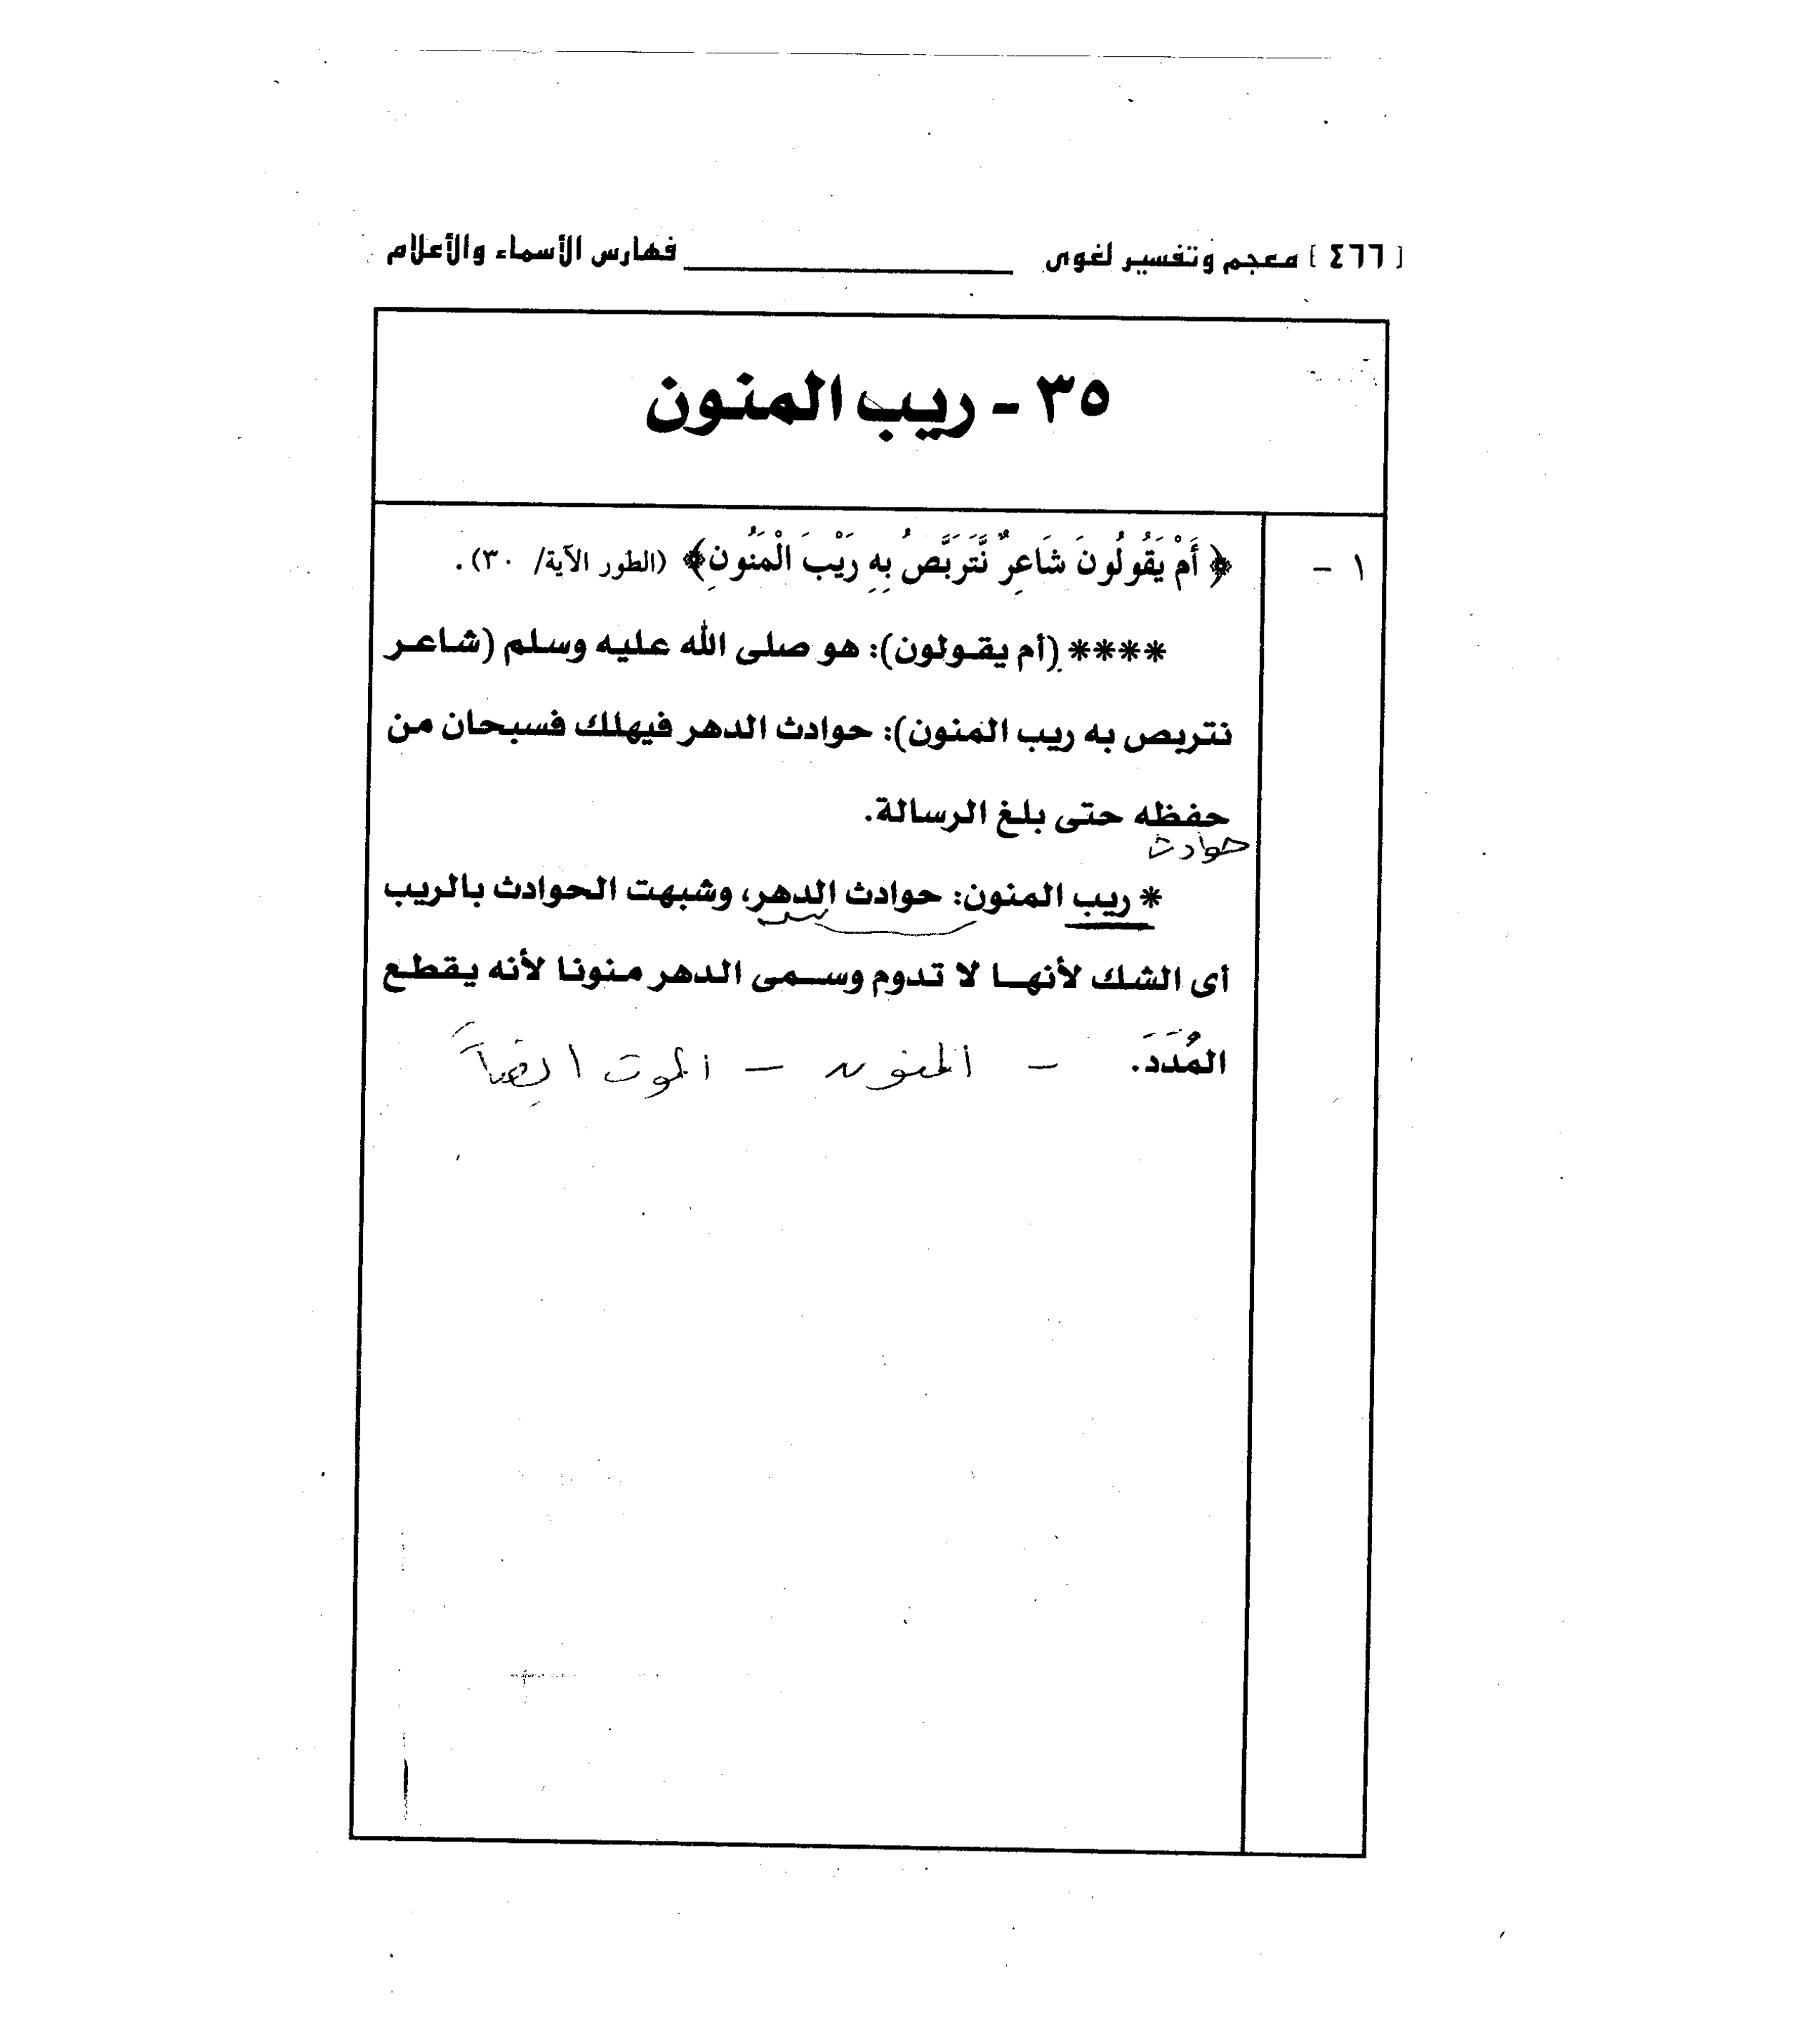 [ ٤٦٦ ] معجم وتفسير لغوى فهارس الأسماء والأعلام
٣٥ - ريب المنون
١ - ﴿ أَمْ يَقُولُونَ شَاعِرٌ نَّتَرَبَّصُ بِهِ رَيْبَ الْمَنُونِ﴾ (الطور الآية/ ٣٠).
**** (أم يقولون): هو صلى الله عليه وسلم (شاعر
نتربص به ريب المنون): حوادث الدهر فيهلك فسبحان من
حفظه حتى بلغ الرسالة.
حوادث
* ريب المنون: حوادث الدهر، وشبهت الحوادث بالريب
أى الشك لأنها لا تدوم وسمى الدهر منونا لأنه يقطع
المُدَدَ. - المنون - الموت أيضاً